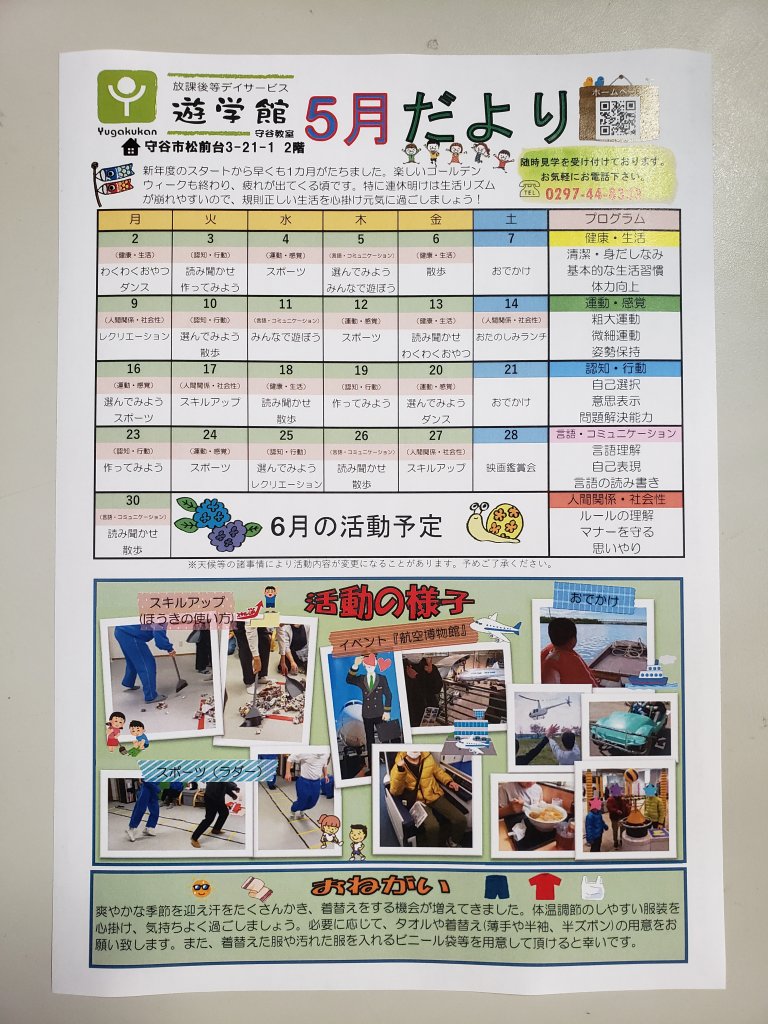 放課後等デイサービス
遊学館
守谷教室
Yugakukan
5月だより
ホームページ
守谷市松前台3-21-1 2階
随時見学を受け付けております。
お気軽にお電話下さい。
TEL 0297-44-8
新年度のスタートから早くも1カ月がたちました。楽しいゴールデン
ウィークも終わり、疲れが出てくる頃です。特に連休明けは生活リズム
が崩れやすいので、規則正しい生活を心掛け元気に過ごしましょう!
月 火 水 木 金 土 プログラム
2 3 4 5 6 7 健康・生活
(健康・生活) (認知・行動) (運動・感覚) (言語・コミュニケーション) (健康・生活) 清潔・身だしなみ
わくわくおやつ 読み聞かせ スポーツ 選んでみよう 散歩 おでかけ 基本的な生活習慣
ダンス 作ってみよう みんなで遊ぼう 体力向上
9 10 11 12 13 14 運動・感覚
(人間関係・社会性) (認知・行動) (言語・コミュニケーション) (運動・感覚) (健康・生活) (人間関係・社会性) 粗大運動
レクリエーション 選んでみよう みんなで遊ぼう スポーツ 読み聞かせ おたのしみランチ 微細運動
散歩 わくわくおやつ 姿勢保持
16 17 18 19 20 21 認知・行動
(運動・感覚) (人間関係・社会性) (健康・生活) (認知・行動) (運動・感覚) 自己選択
選んでみよう スキルアップ 読み聞かせ 作ってみよう 選んでみよう おでかけ 意思表示
スポーツ 散歩 ダンス 問題解決能力
23 24 25 26 27 28 言語・コミュニケーション
(認知・行動) (運動・感覚) (認知・行動) (言語・コミュニケーション) (人間関係・社会性) 言語理解
作ってみよう スポーツ 選んでみよう 読み聞かせ スキルアップ 映画鑑賞会 自己表現
レクリエーション 散歩 言語の読み書き
30 人間関係・社会性
(言語・コミュニケーション) 6月の活動予定 ルールの理解
読み聞かせ マナーを守る
散歩 思いやり
※天候等の諸事情により活動内容が変更になることがあります。予めご了承ください。
活動の様子
スキルアップ
(ほうきの使い方)
イベント『航空博物館』
おでかけ
スポーツ(ラダー)
おねがい
爽やかな季節を迎え汗をたくさんかき、着替えをする機会が増えてきました。体温調節のしやすい服装を
心掛け、気持ちよく過ごしましょう。必要に応じて、タオルや着替え(薄手や半袖、半ズボン)の用意をお
願い致します。また、着替えた服や汚れた服を入れるビニール袋等を用意して頂けると幸いです。